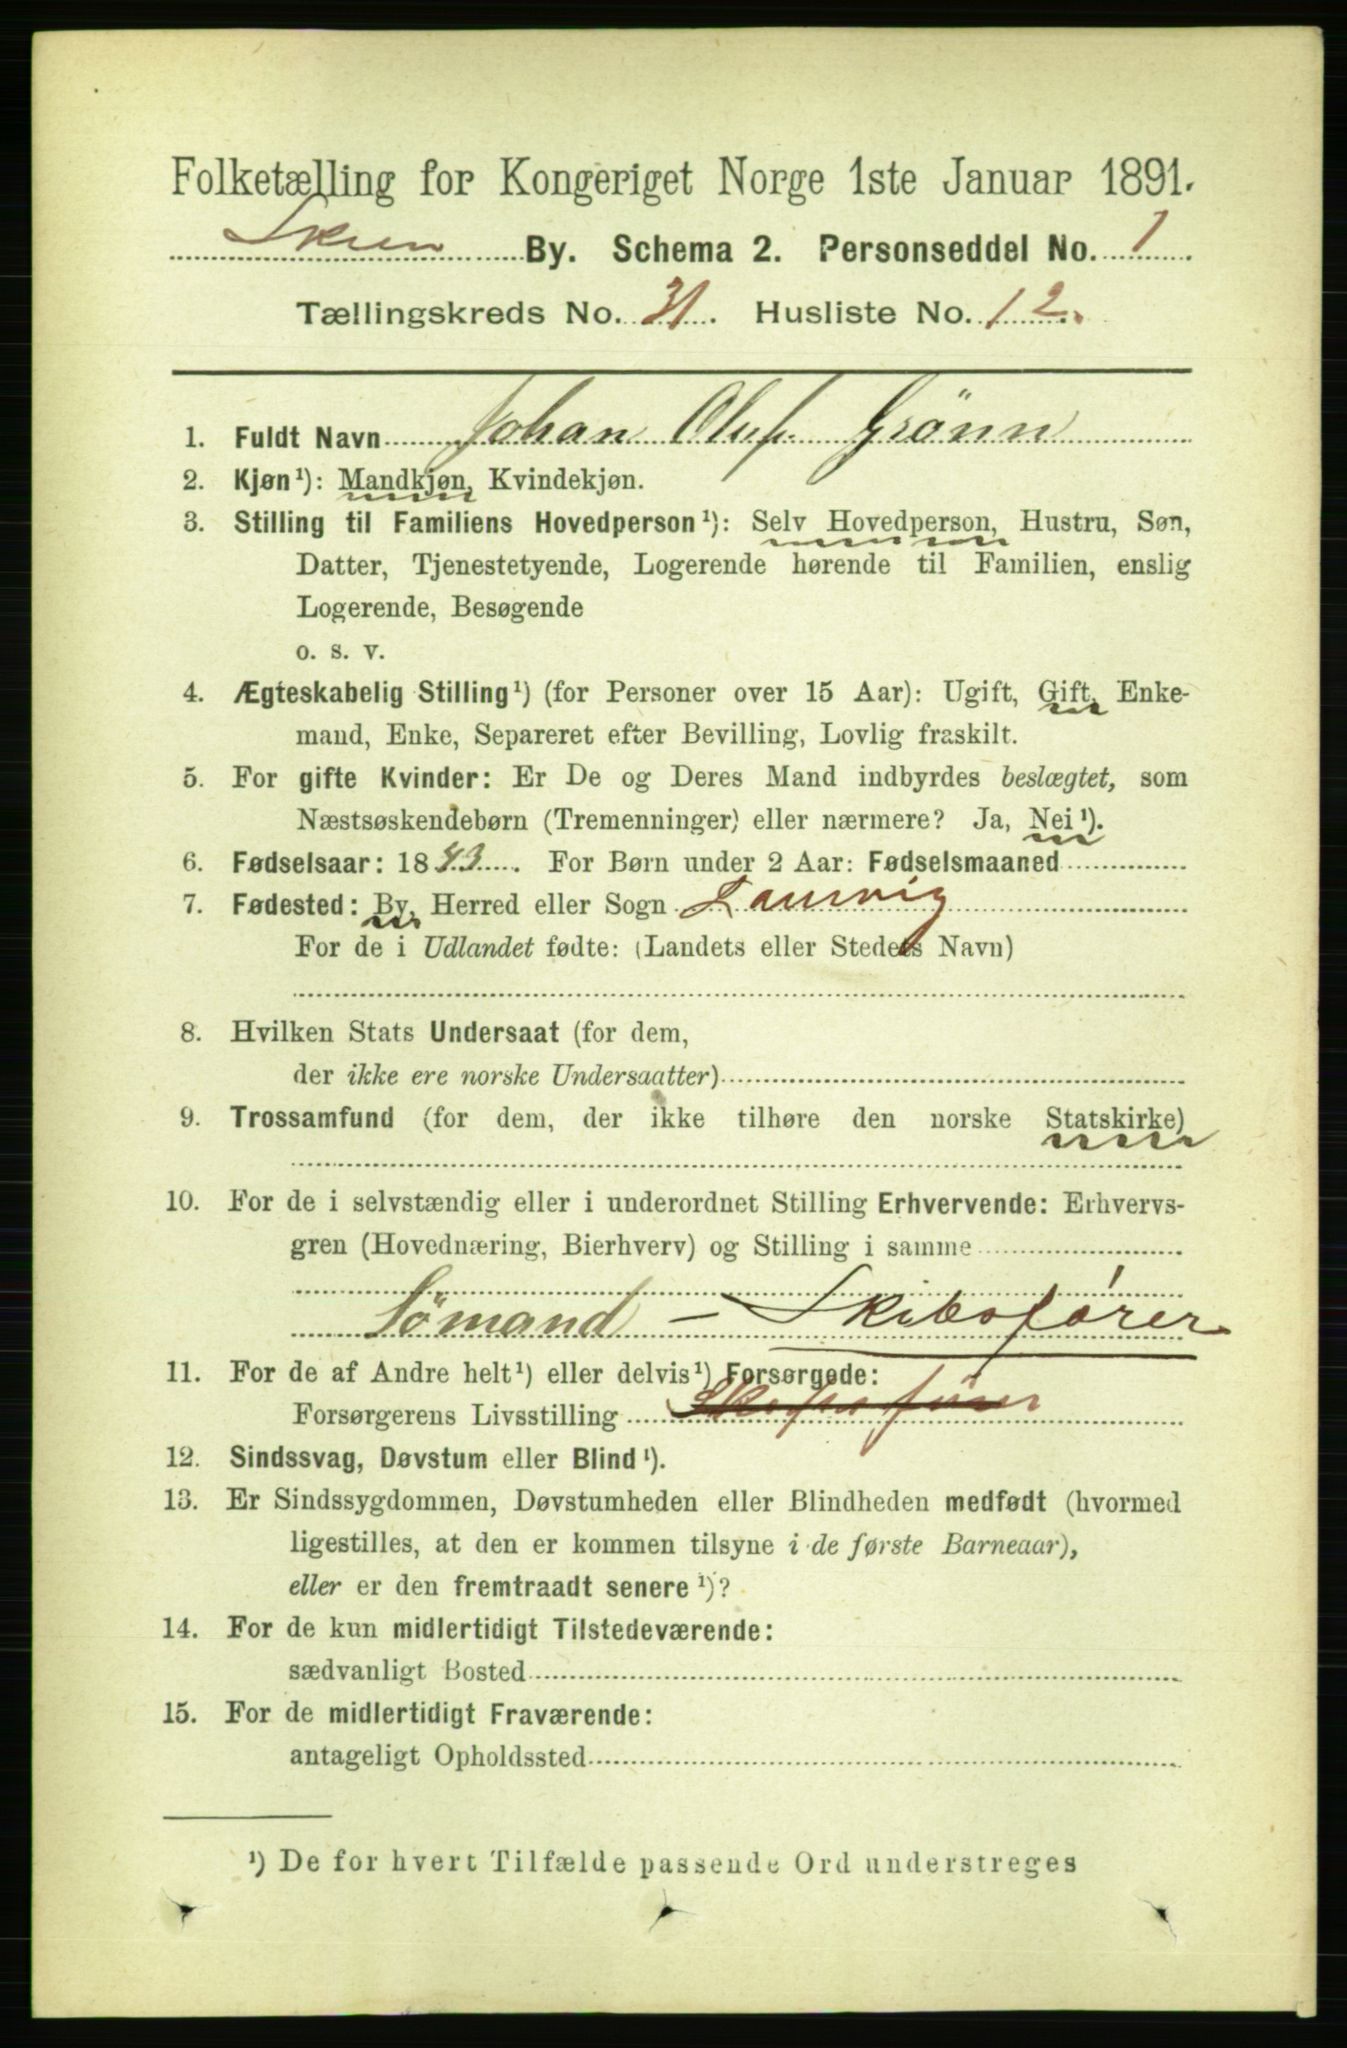 Folketælling for Kongeriget Norge 1ste Januar 1891.
Skien By. Schema 2. Personseddel No. 1
Tællingskreds No. 31. Husliste No. 12.
1. Fuldt Navn Johan Oluf Grönn
2. Kjøn¹): Mandkjøn, Kvindekjøn.
3. Stilling til Familiens Hovedperson¹): Selv Hovedperson, Hustru, Søn,
Datter, Tjenestetyende, Logerende hørende til Familien, enslig
Logerende, Besøgende
o. s. v.
4. Ægteskabelig Stilling¹) (for Personer over 15 Aar): Ugift, Gift, Enke-
mand, Enke, Separeret efter Bevilling, Lovlig fraskilt.
5. For gifte Kvinder: Er De og Deres Mand indbyrdes beslægtet, som
Næstsøskendebørn (Tremenninger) eller nærmere? Ja, Nei¹).
6. Fødselsaar: 1843. For Børn under 2 Aar: Fødselsmaaned
7. Fødested: By, Herred eller Sogn Laurvig
For de i Udlandet fødte: (Landets eller Stedets Navn)
8. Hvilken Stats Undersaat (for dem,
der ikke ere norske Undersaatter)
9. Trossamfund (for dem, der ikke tilhøre den norske Statskirke)
10. For de i selvstændig eller i underordnet Stilling Erhvervende: Erhvervs-
gren (Hovednæring, Bierhverv) og Stilling i samme
Sömand - Skibsfører
11. For de af Andre helt¹) eller delvis¹) Forsørgede:
Forsørgerens Livsstilling
12. Sindssvag, Døvstum eller Blind¹).
13. Er Sindssygdommen, Døvstumheden eller Blindheden medfødt (hvormed
ligestilles, at den er kommen tilsyne i de første Barneaar),
eller er den fremtraadt senere¹)?
14. For de kun midlertidigt Tilstedeværende:
sædvanligt Bosted
15. For de midlertidigt Fraværende:
antageligt Opholdssted
¹) De for hvert Tilfælde passende Ord understreges